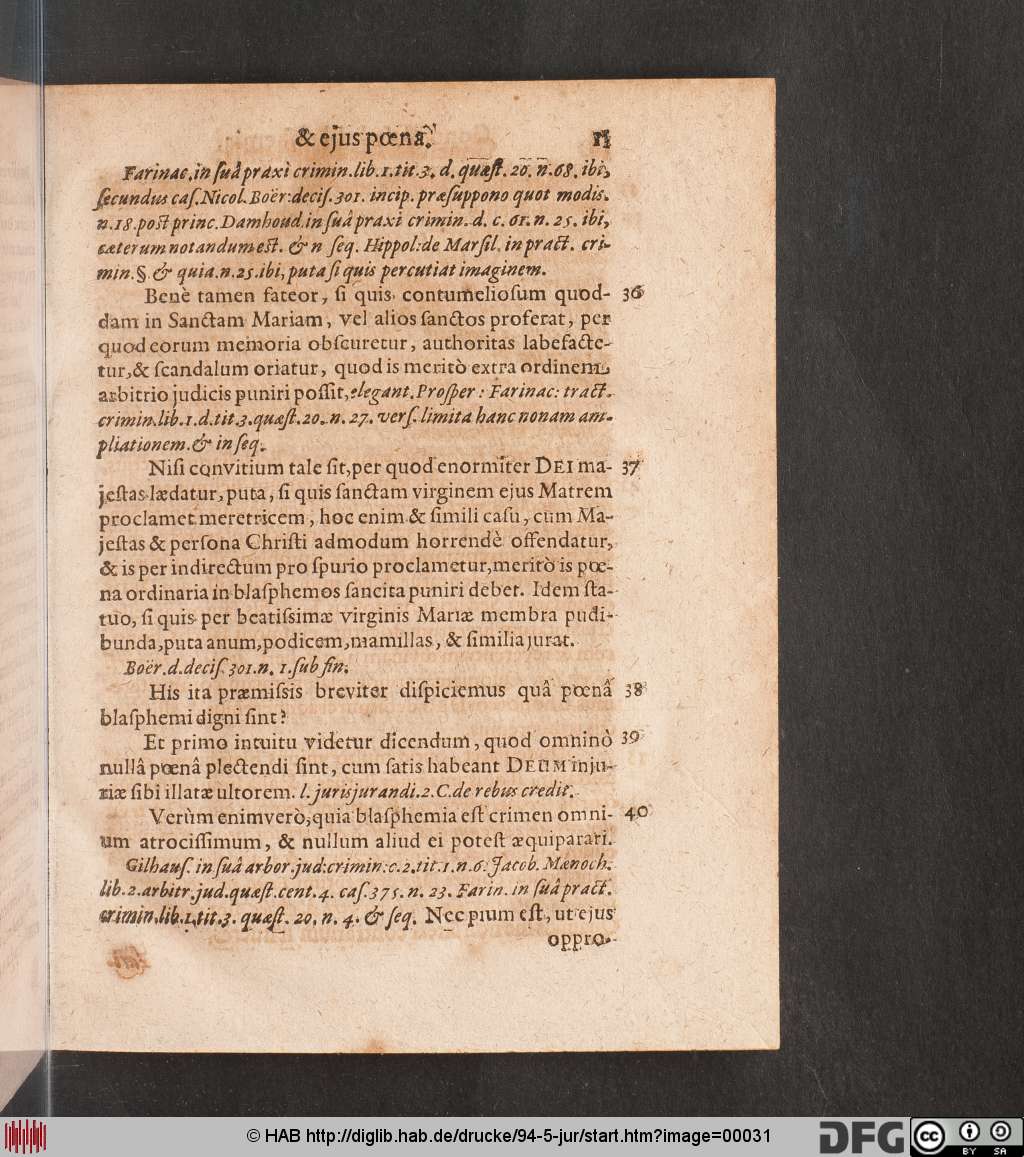 & ejus pœnâ.
Farinac. in suâ praxi crimin. lib. 1. tit. 3. d. quæst. 20. n. 68. ibi,
secundus cas. Nicol. Boër: decis. 301. incip. præsuppono quot modis.
n. 18. post princ. Damhoud. in suâ praxi crimin. d. c. 61. n. 25. ibi,
cæterum notandum est. & n seq. Hippol: de Marsil. in pract. cri-
min. §. & quia. n. 25. ibi, puta si quis percutiat imaginem.
Benè tamen fateor, si quis contumeliosum quod- 36
dam in Sanctam Mariam, vel alios sanctos proferat, per
quod eorum memoria obscuretur, authoritas labefacte-
tur, & scandalum oriatur, quod is meritò extra ordinem
arbitrio judicis puniri possit, elegant. Prosper: Farinac: tract.
crimin. lib. 1. d. tit. 3. quæst. 20. n. 27. vers. limita hanc nonam am-
pliationem. & in seq.
Nisi convitium tale sit, per quod enormiter DEI ma- 37
jestas lædatur, puta, si quis sanctam virginem ejus Matrem
proclamet meretricem, hoc enim & simili casu, cùm Ma-
jestas & persona Christi admodum horrendè offendatur,
& is per indirectum pro spurio proclametur, meritò is pœ-
na ordinaria in blasphemos sancita puniri debet. Idem sta-
tuo, si quis per beatissimæ virginis Mariæ membra pudi-
bunda, puta anum, podicem, mamillas, & similia jurat.
Boër. d. decis. 301. n. 1. sub fin.
His ita præmissis breviter dispiciemus quâ pœnâ 38
blasphemi digni sint?
Et primo intuitu videtur dicendum, quod omninò 39
nullâ pœnâ plectendi sint, cum satis habeant DEUM inju-
riæ sibi illatæ ultorem. l. jurisjurandi. 2. C. de rebus credit.
Verùm enimverò, quia blasphemia est crimen omni- 40
um atrocissimum, & nullum aliud ei potest æquiparari.
Gilhaus. in suâ arbor. jud: crimin: c. 2. tit. 1. n. 6. Jacob. Mænoch.
lib. 2. arbitr. jud. quæst. cent. 4. cas. 375. n. 23. Farin. in suâ pract.
crimin. lib. 1. tit. 3. quæst. 20. n. 4. & seq. Nec pium est, ut ejus
oppro-
© HAB http://diglib.hab.de/drucke/94-5-jur/start.htm?image=00031
DFG
cc BY SA